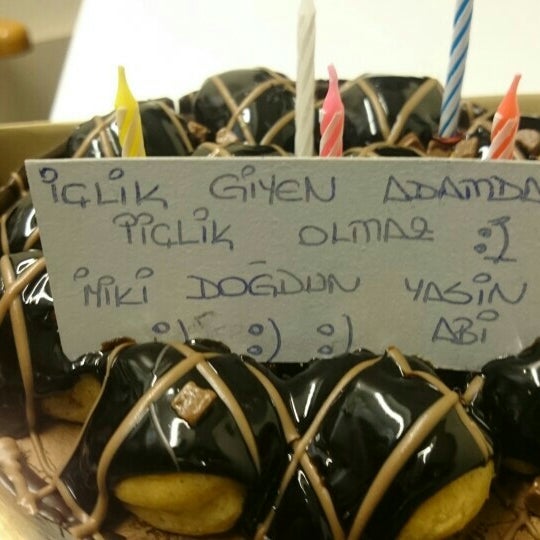 İÇLİK GİYEN ADAMDA
PİÇLİK OLMAZ :)
İYİKİ DOĞDUN YASİN
:) :) :) ABİ